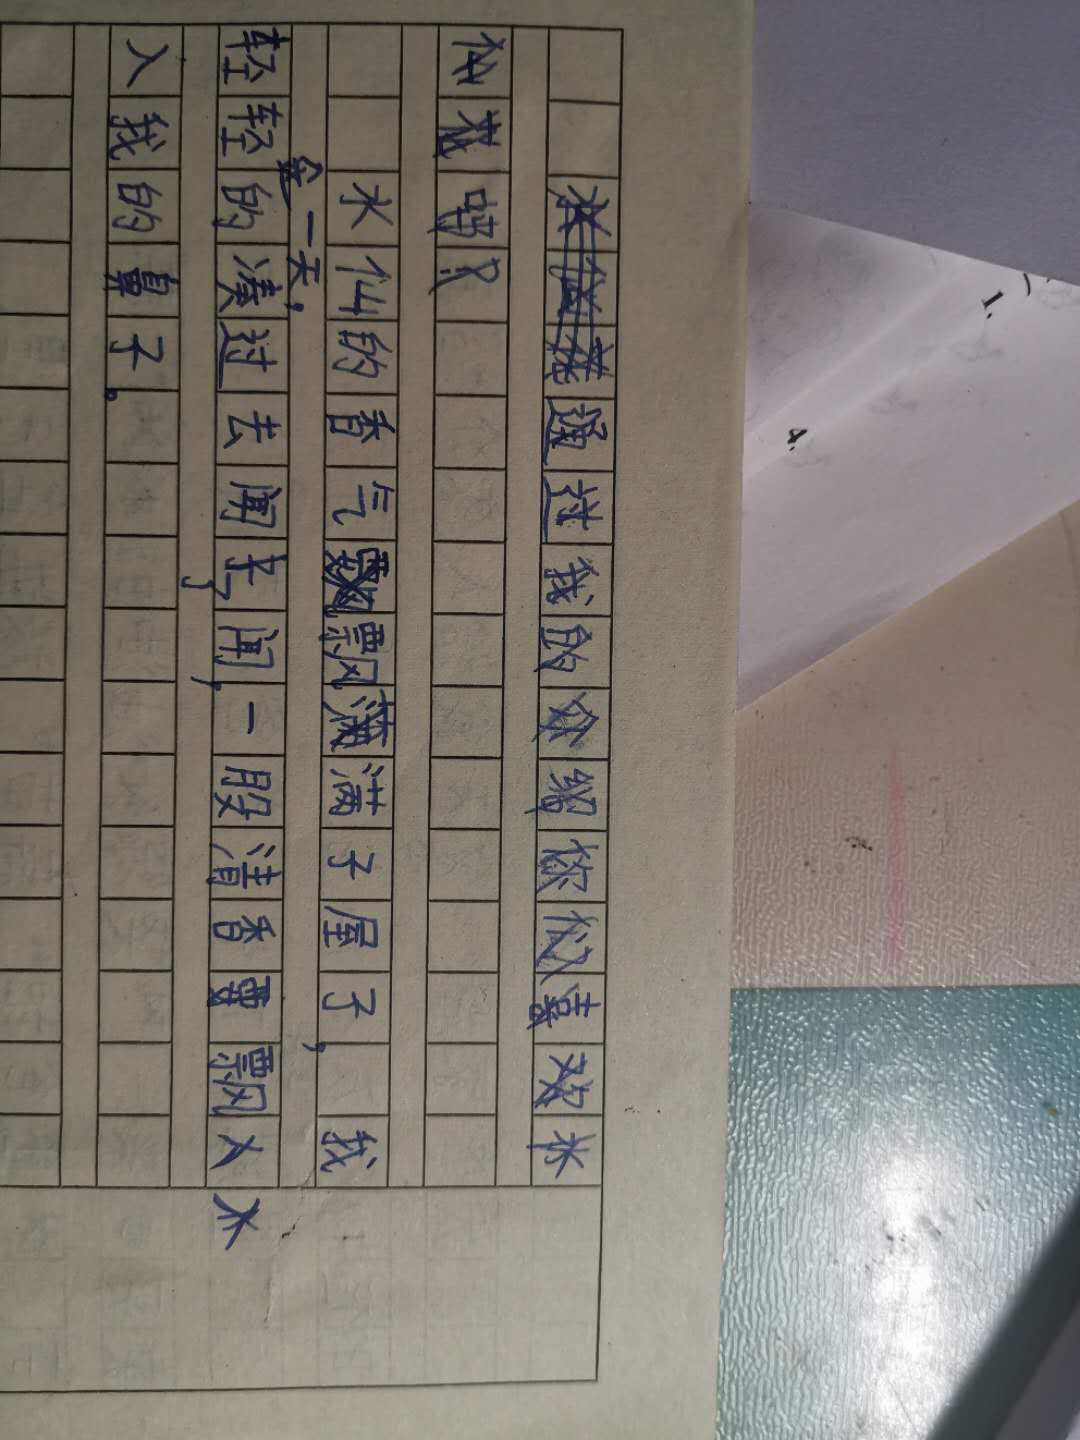 通过我的介绍你喜欢水
仙花吗?
水仙的香气飘满子屋子,我
一天,
轻轻的凑过去闻了闻,一股清香飘入
入我的鼻子。
水
1.
4.